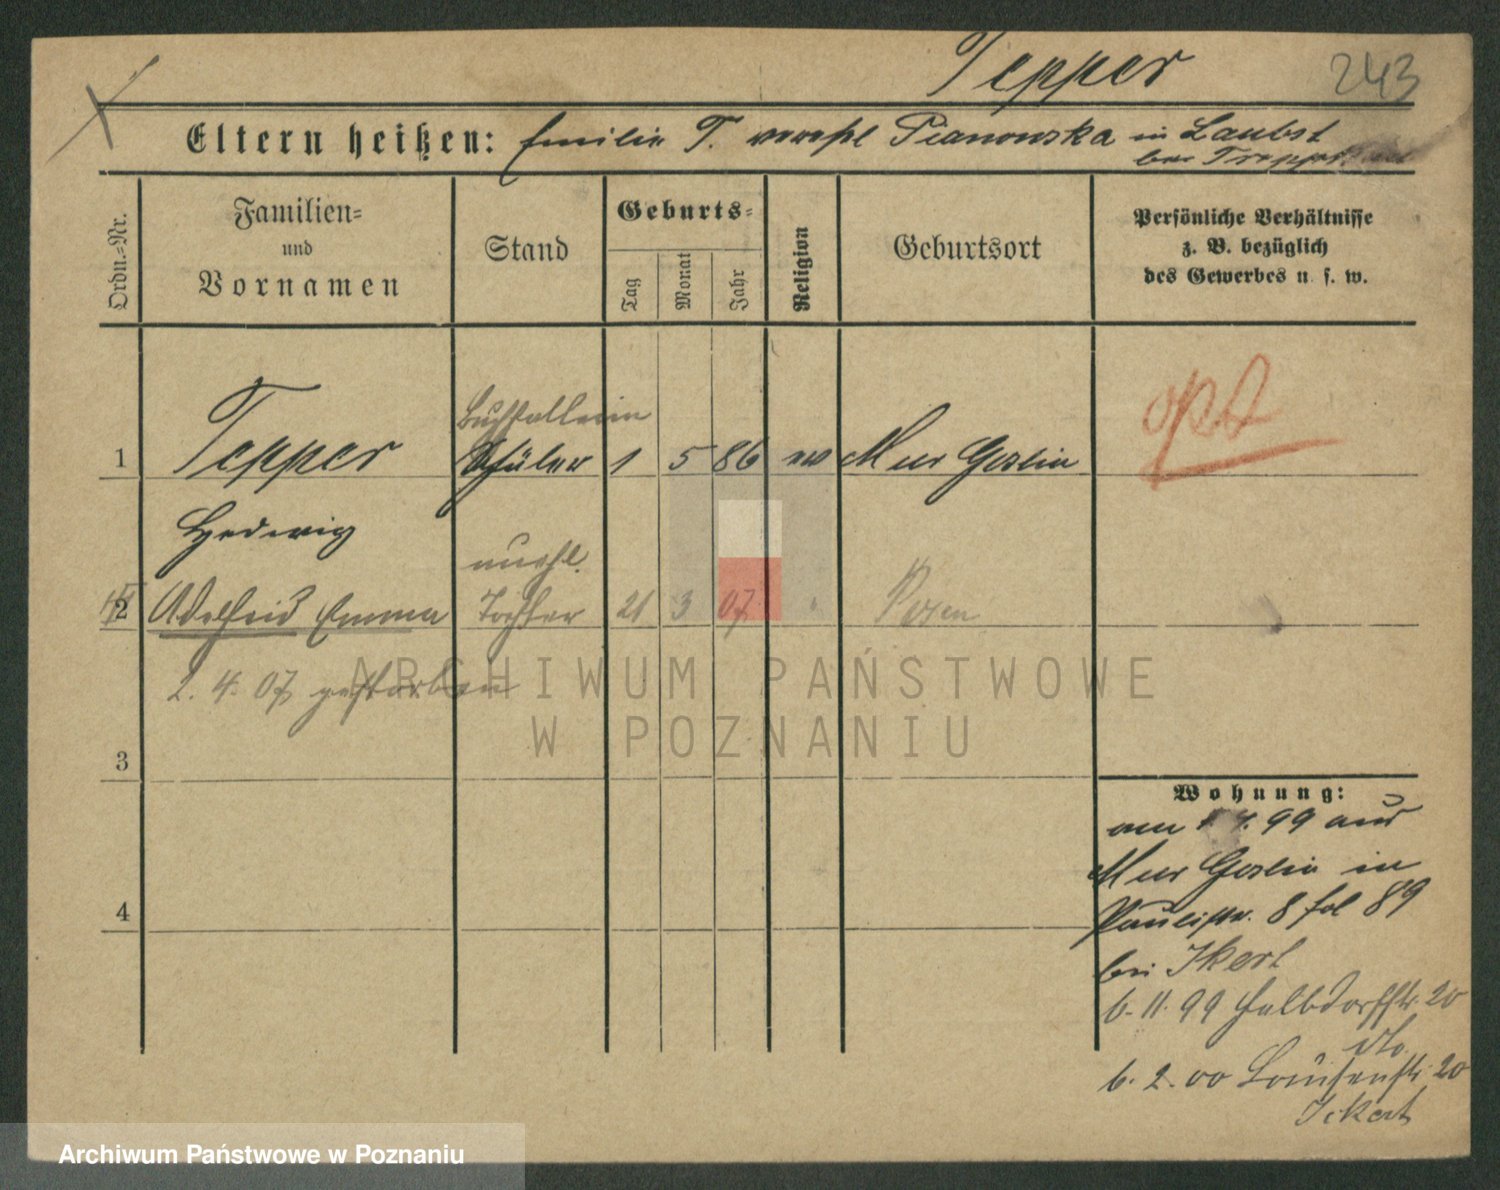 Tepper
243
Eltern heißen: Emilie T. verehl Pianowska in Laubst
bei
Ordn.=Nr.
Familien=
und
Vornamen
Stand
Geburts=
Tag
Monat
Jahr
Religion
Geburtsort
Persönliche Verhältnisse
z. B. bezüglich
des Gewerbes u. s. w.
opt
Buchhalterin
1 Tepper Schüler 1 5 86 ev Mur Goslin
Hedwig
unehl.
2 Adelheid Emma Tochter 21 3 07 " Posen
2. 4. 07 gestorben
3
4
Wohnung:
am 4. 99 aus
Mur Goslin in
Paulistr. 8 fol 89
bei Ikert
6. 11. 99 Halbdorfstr. 20
dto
6. 2. 00 Louisenstr. 20
Ickert
ARCHIWUM PAŃSTWOWE
W POZNANIU
Archiwum Państwowe w Poznaniu